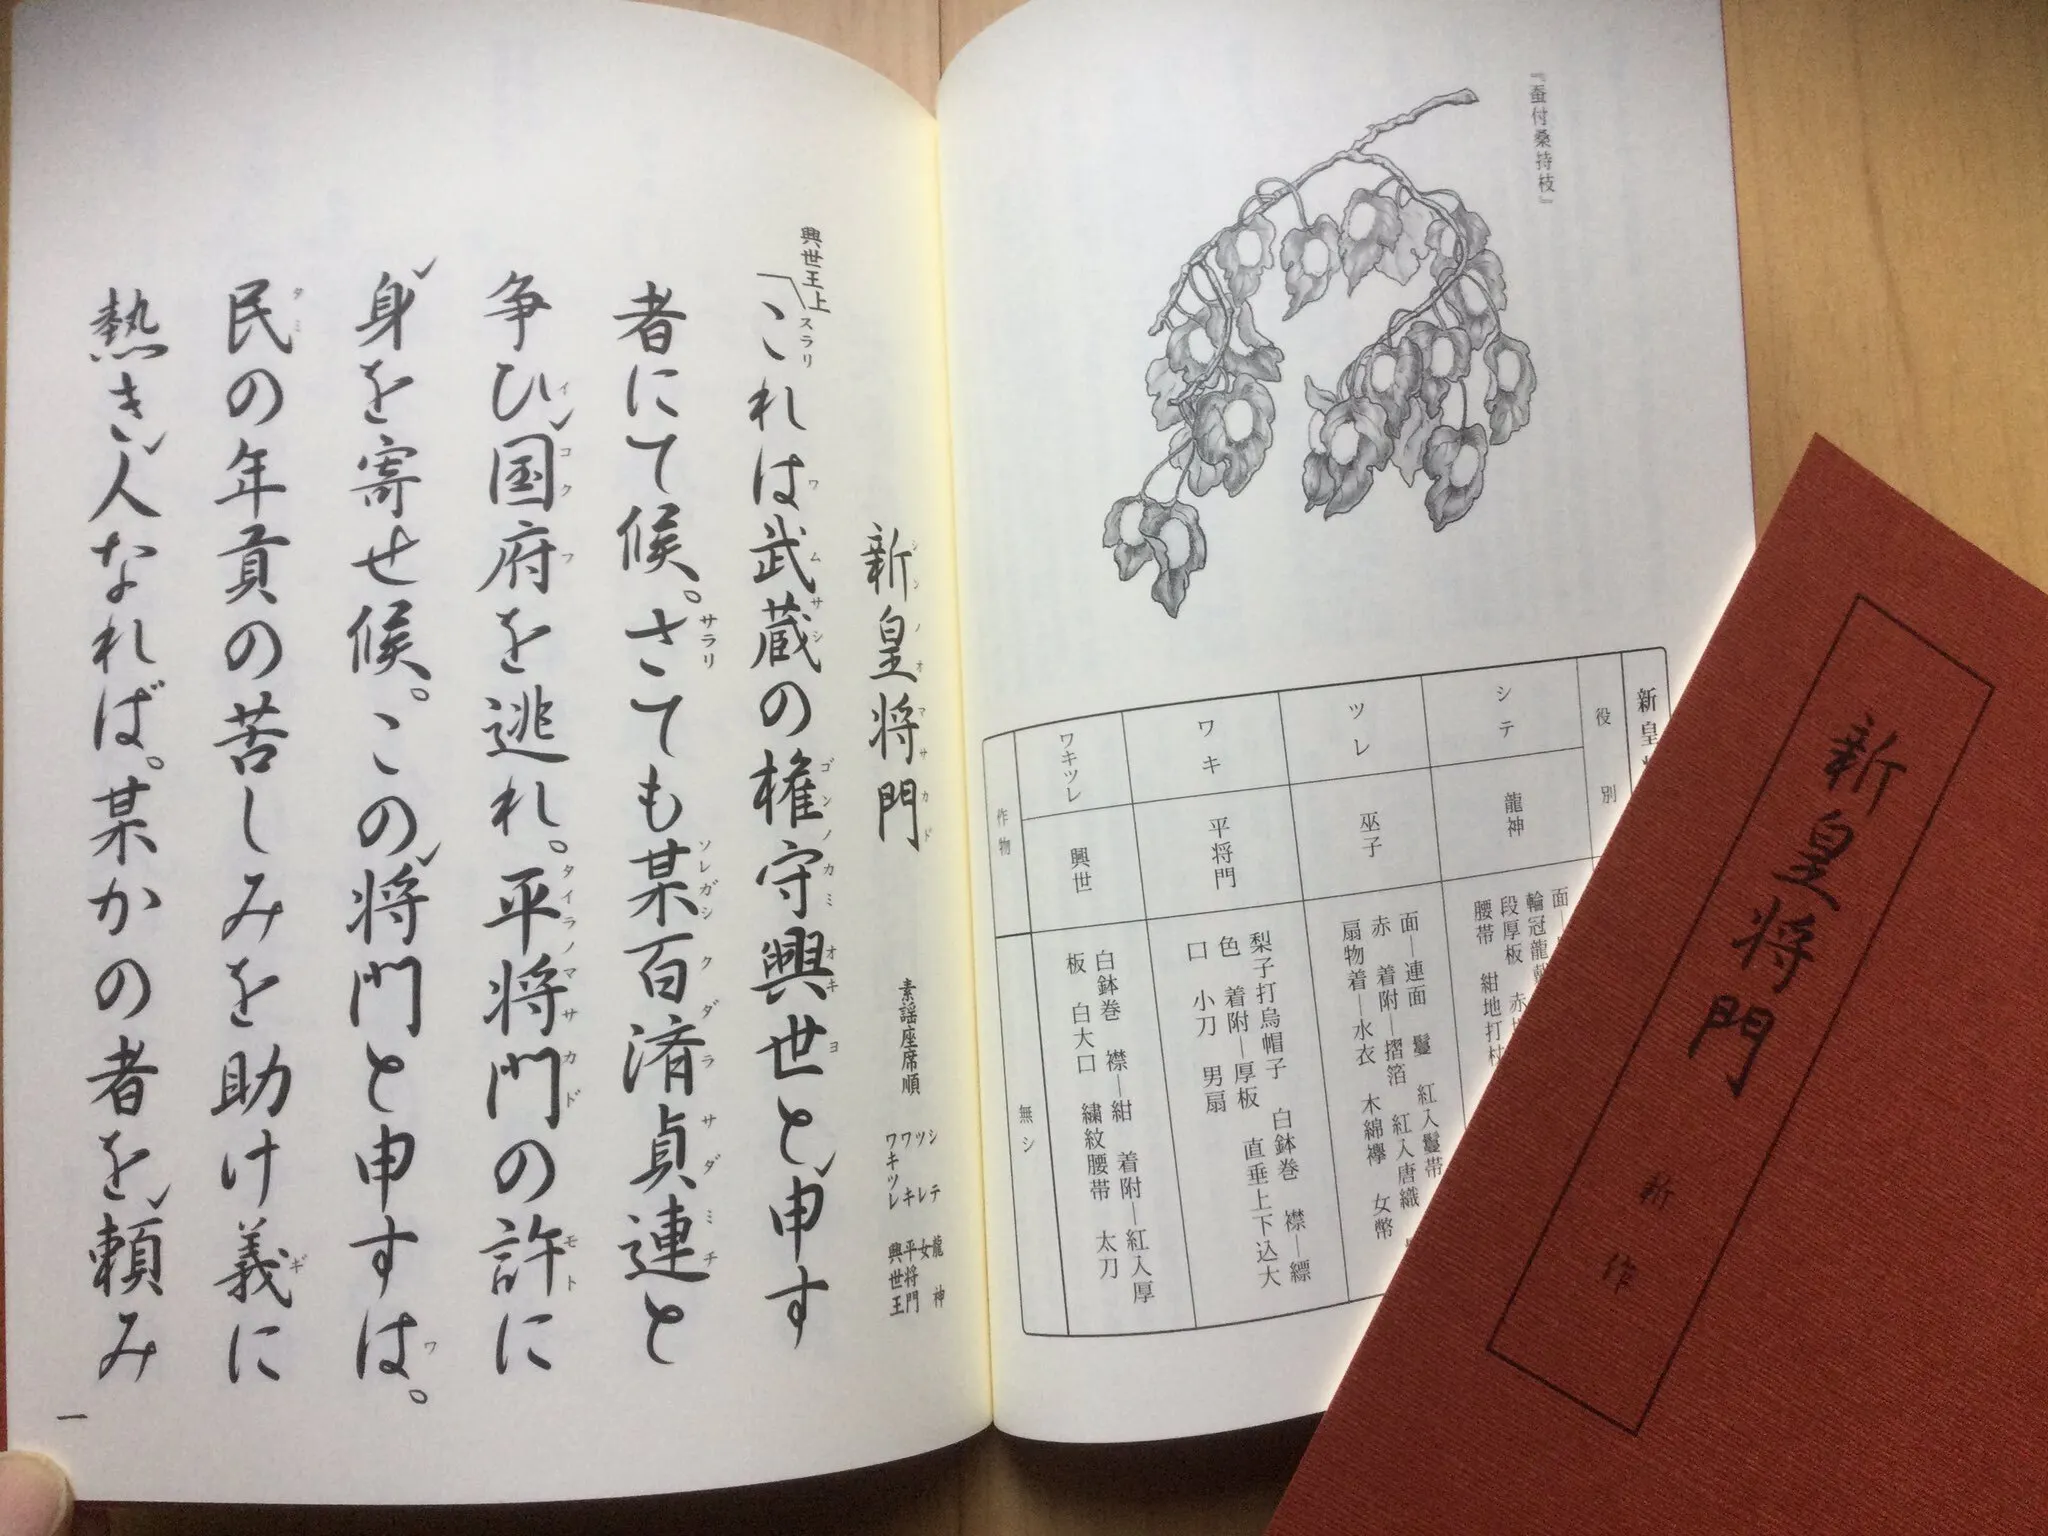 『蚕付桑持枝』
新皇
役別
シテ
龍神
面―
輪冠龍
段厚板 赤
腰帯 紺地打杖
ツレ
巫子
面―連面 鬘 紅入鬘帯
赤 着附―摺箔 紅入唐織
扇物着―水衣 木綿襷 女幣
ワキ
平将門
梨子打烏帽子 白鉢巻 襟―縹
色 着附―厚板 直垂上下込大
口 小刀 男扇
ワキツレ
興世
白鉢巻 襟―紺 着附―紅入厚
板 白大口 繍紋腰帯 太刀
作物
無シ
新皇将門
シンノオマサカド
素謡座席順
シテ 龍神
ツレ 女
ワキ 平将門
ワキツレ 興世王
興世王上
スラリ
これは武蔵の権守興世と申す
ワ ムサシ ゴンノカミ オキヨ
者にて候。さても某百済貞連と
サラリ ソレガシ クダラ サダミチ
争ひ国府を逃れ。平将門の許に
イ コクフ タイラノマサカド モト
身を寄せ候。この将門と申すは。
ワ
民の年貢の苦しみを助け義に
タミ ギ
熱き人なれば。某かの者を頼み
一
新皇将門 新作